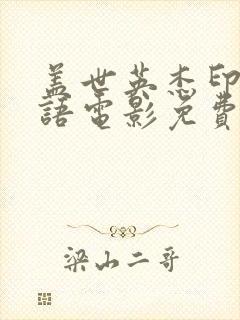 盖世英杰印
語電影免費
梁山二哥